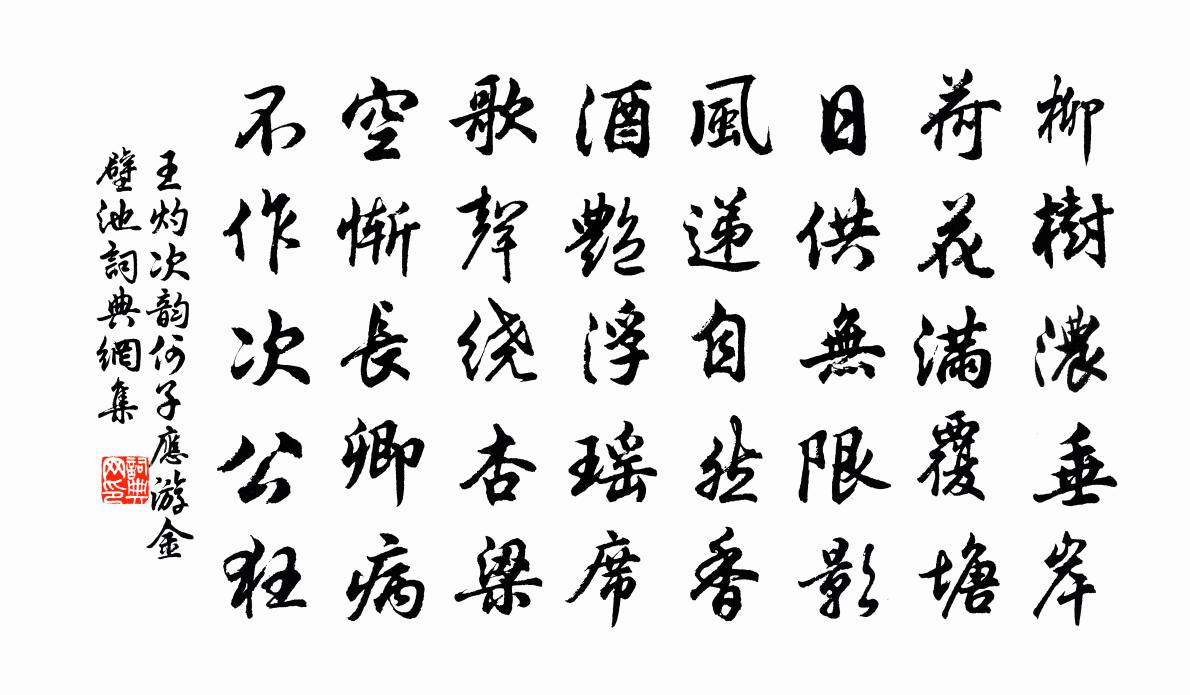 柳樹濃垂岸
荷花滿覆塘
日供無限影
風递自然香
酒艷浮瑶席
歌聲绕杏梁
空惭長卿病
不作次公狂
王灼次韵何子應游金
壁池詞典網集
詞典
网印